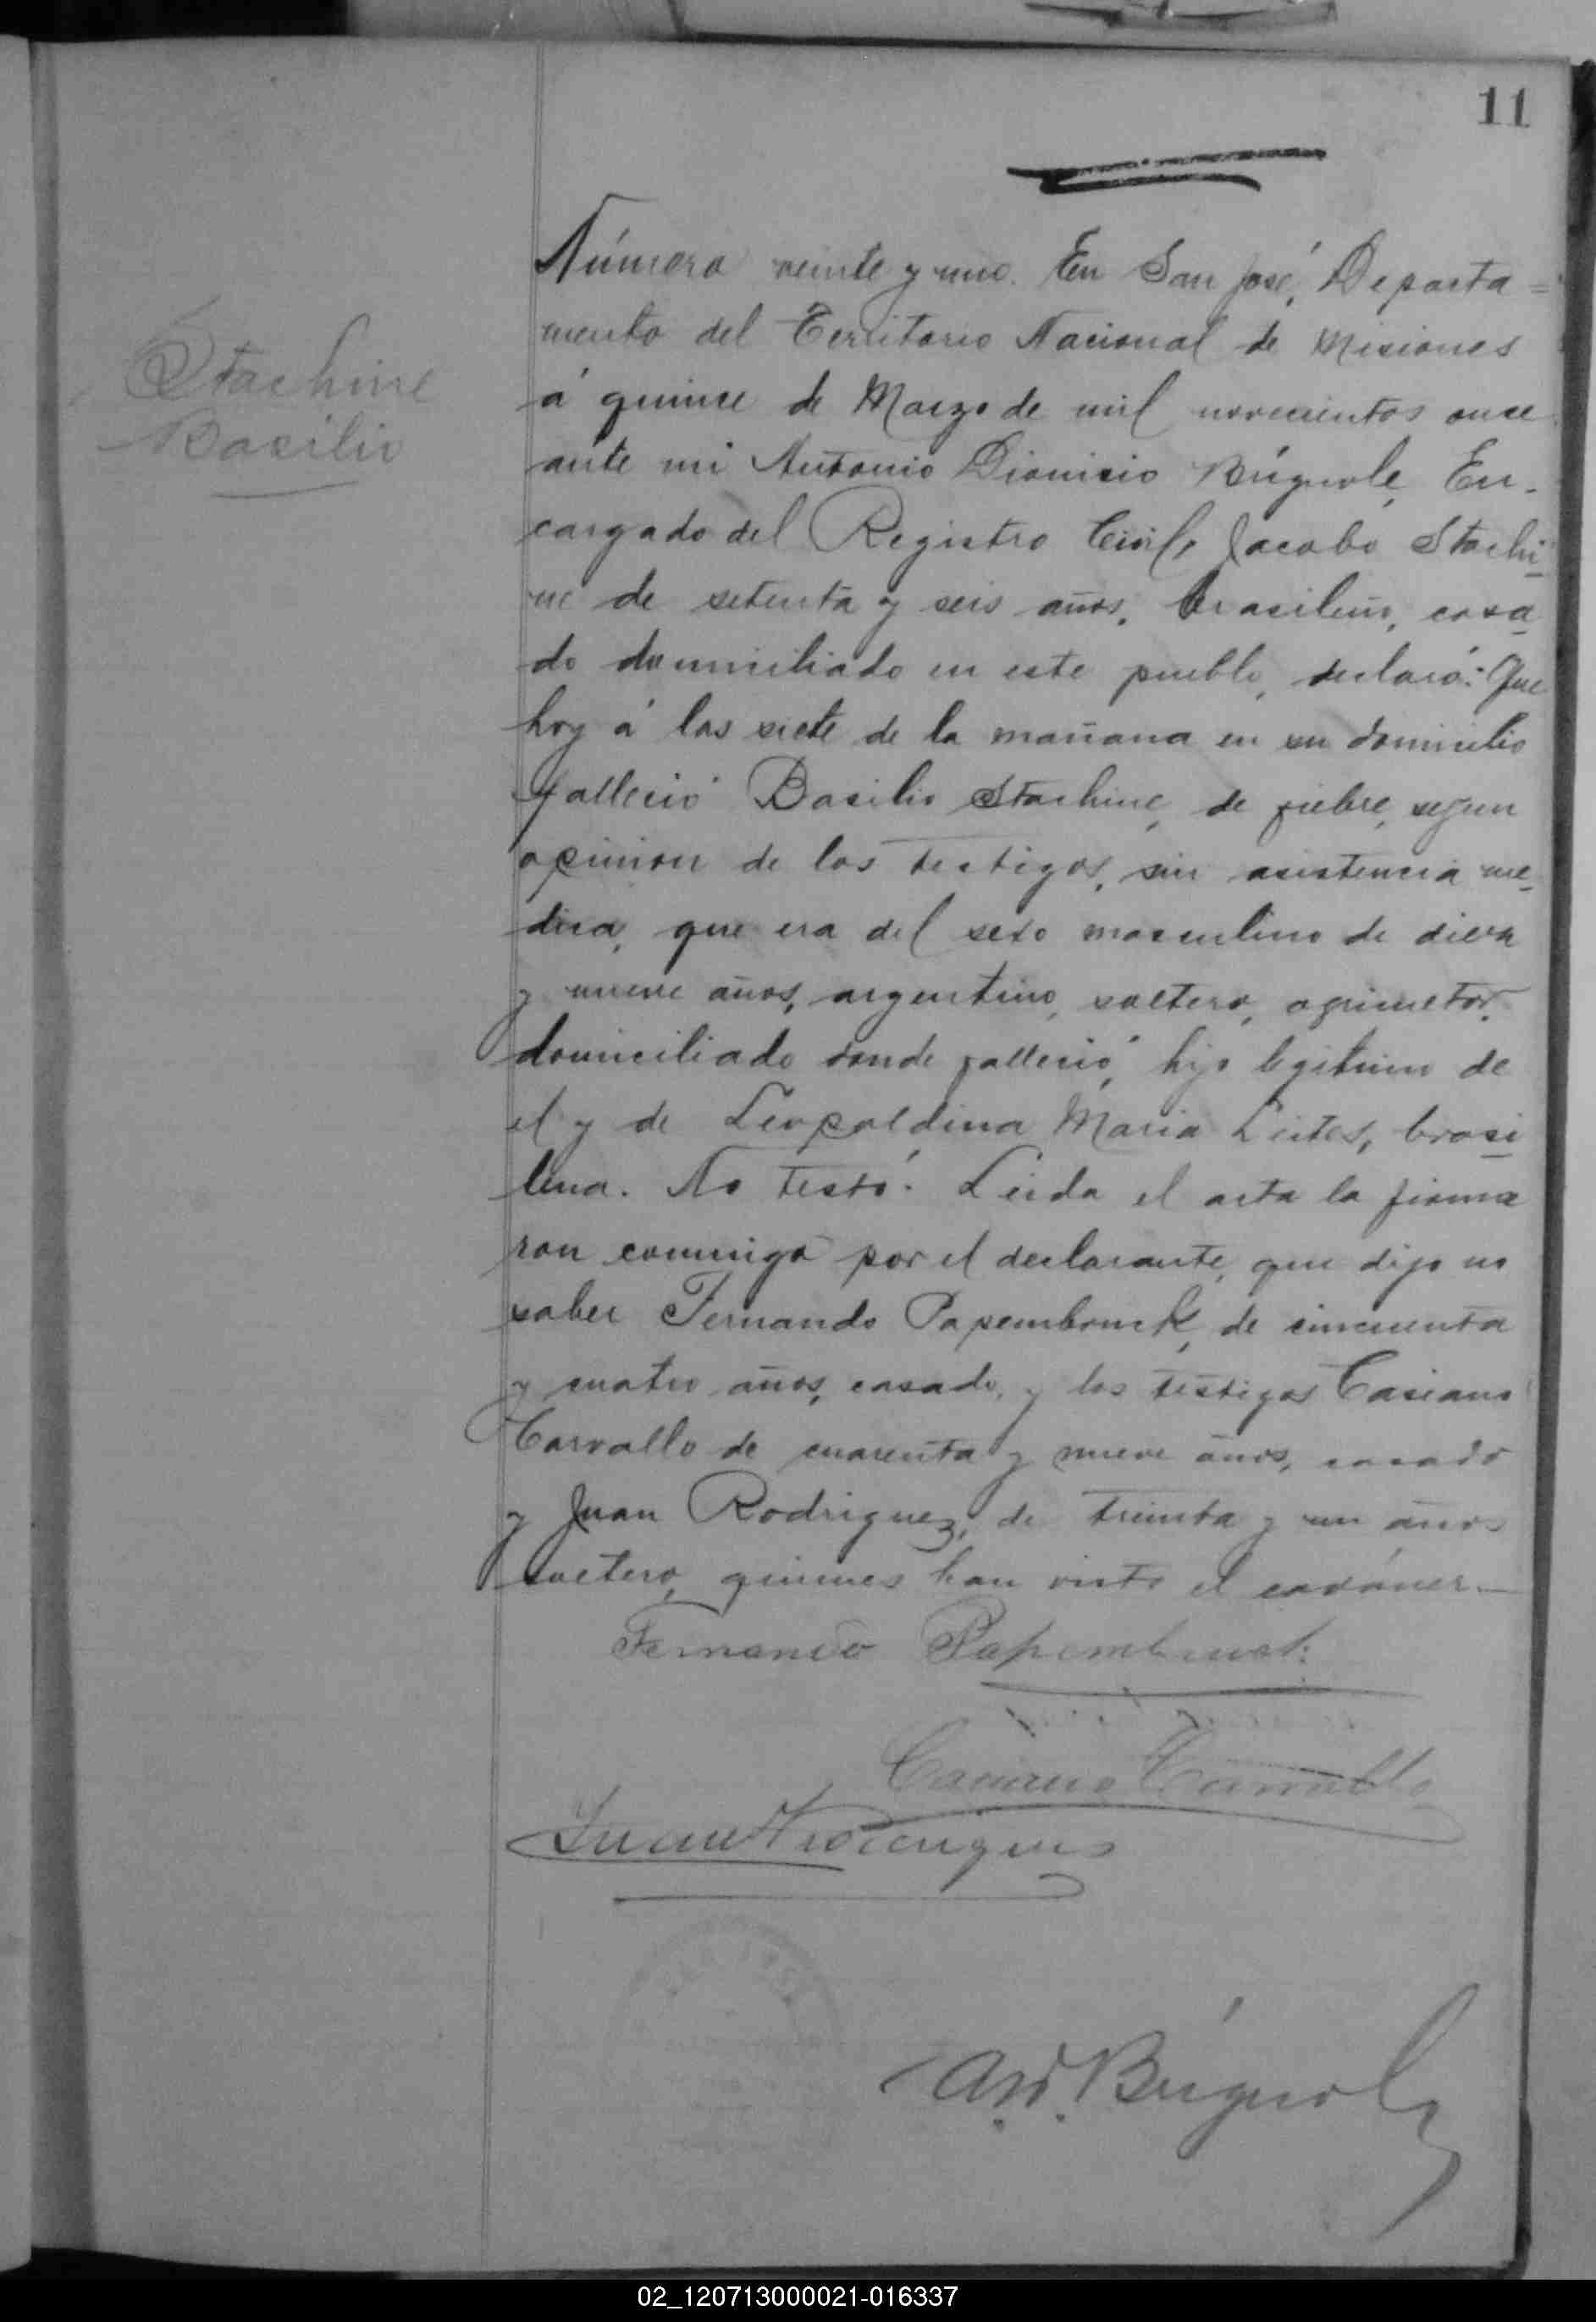 11
Número veinte y uno. En San José, Departa=
mento del Territorio Nacional de Misiones
á quince de Marzo de mil novecientos once
ante mi Antonio Dionisio Búgnole, En-
cargado del Registro Civil, Jacobo Stachi
ne de setenta y seis años, brasileño, casa
do domiciliado en este pueblo, declaró: Que
hoy á las siete de la mañana en su domicilio
falleció Basilio Stachine, de fiebre, segun
opinion de los testigos, sin asistencia me
dica, que era del sexo masculino de diez
y nueve años, argentino, soltero, agrimetor,
domiciliado donde falleció, hijo legitimo de
el y de Leopoldina Maria Leites, brasi
lena. No testó. Leida el acta la firma
ron conmigo por el declarante, que dijo no
saber Fernando Papembrouck, de cincuenta
y cuatro años, casado, y los testigos Casiano
Carvallo de cuarenta y nueve años, casado
y Juan Rodriguez, de treinta y un años
soltero, quienes han visto el cadáver.—
Stachine
Basilio
Fernando Papembruck
Casiano Carvallo
Juan Rodrigues
A. D. Búgnole
02_120713000021-016337